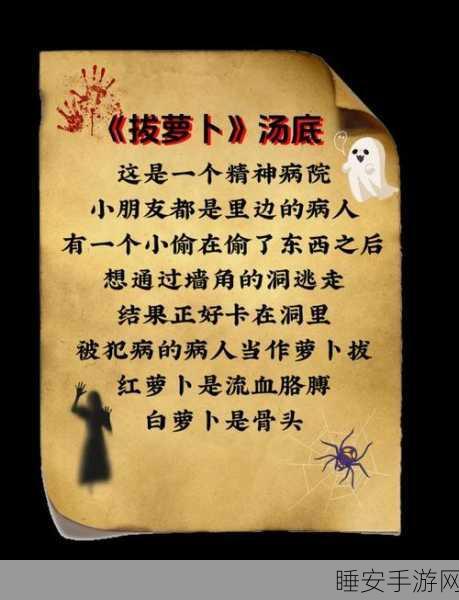 《拔萝卜》汤底
这是一个精神病院
小朋友都是里边的病人
有一个小偷在偷了东西之后
想通过墙角的洞逃走
结果正好卡在洞里
被犯病的病人当作萝卜拔
红萝卜是流血胳膊
白萝卜是骨头
睡安手游网